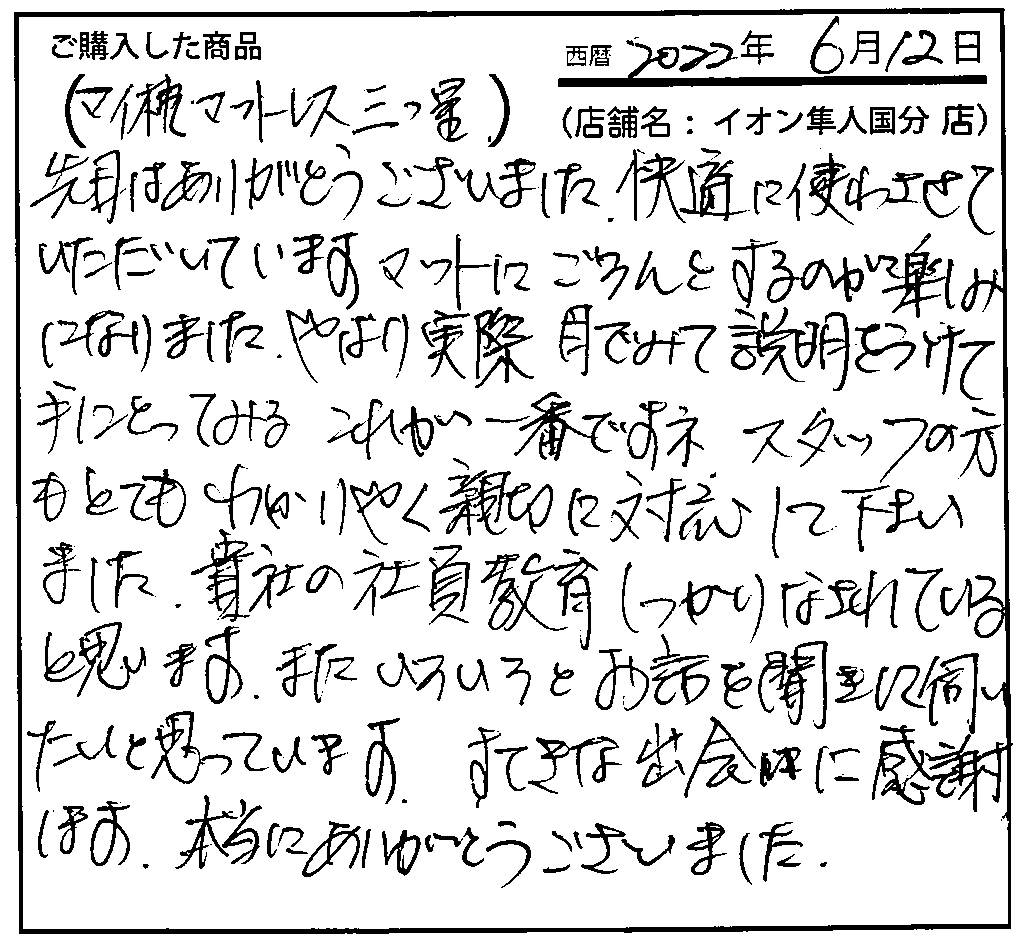 ご購入した商品
西暦 2022年 6月12日
(マイ枕マットレス 三つ星)
(店舗名：イオン隼人国分 店)
先月はありがとうございました。快適に使わさせて
いただいています マットに ごろんと するのが楽しみ
になりました。やはり 実際 目でみて 説明をうけて
手にとってみる これが 一番ですネ スタッフの方
もとても わかりやく 親切に 対応して 下さい
ました。貴社の 社員教育 しっかり なされている
と思います。また いろいろと お話を聞きに伺い
たいと思っています。すてきな 出会いに 感謝
します。本当にありがとうございました.